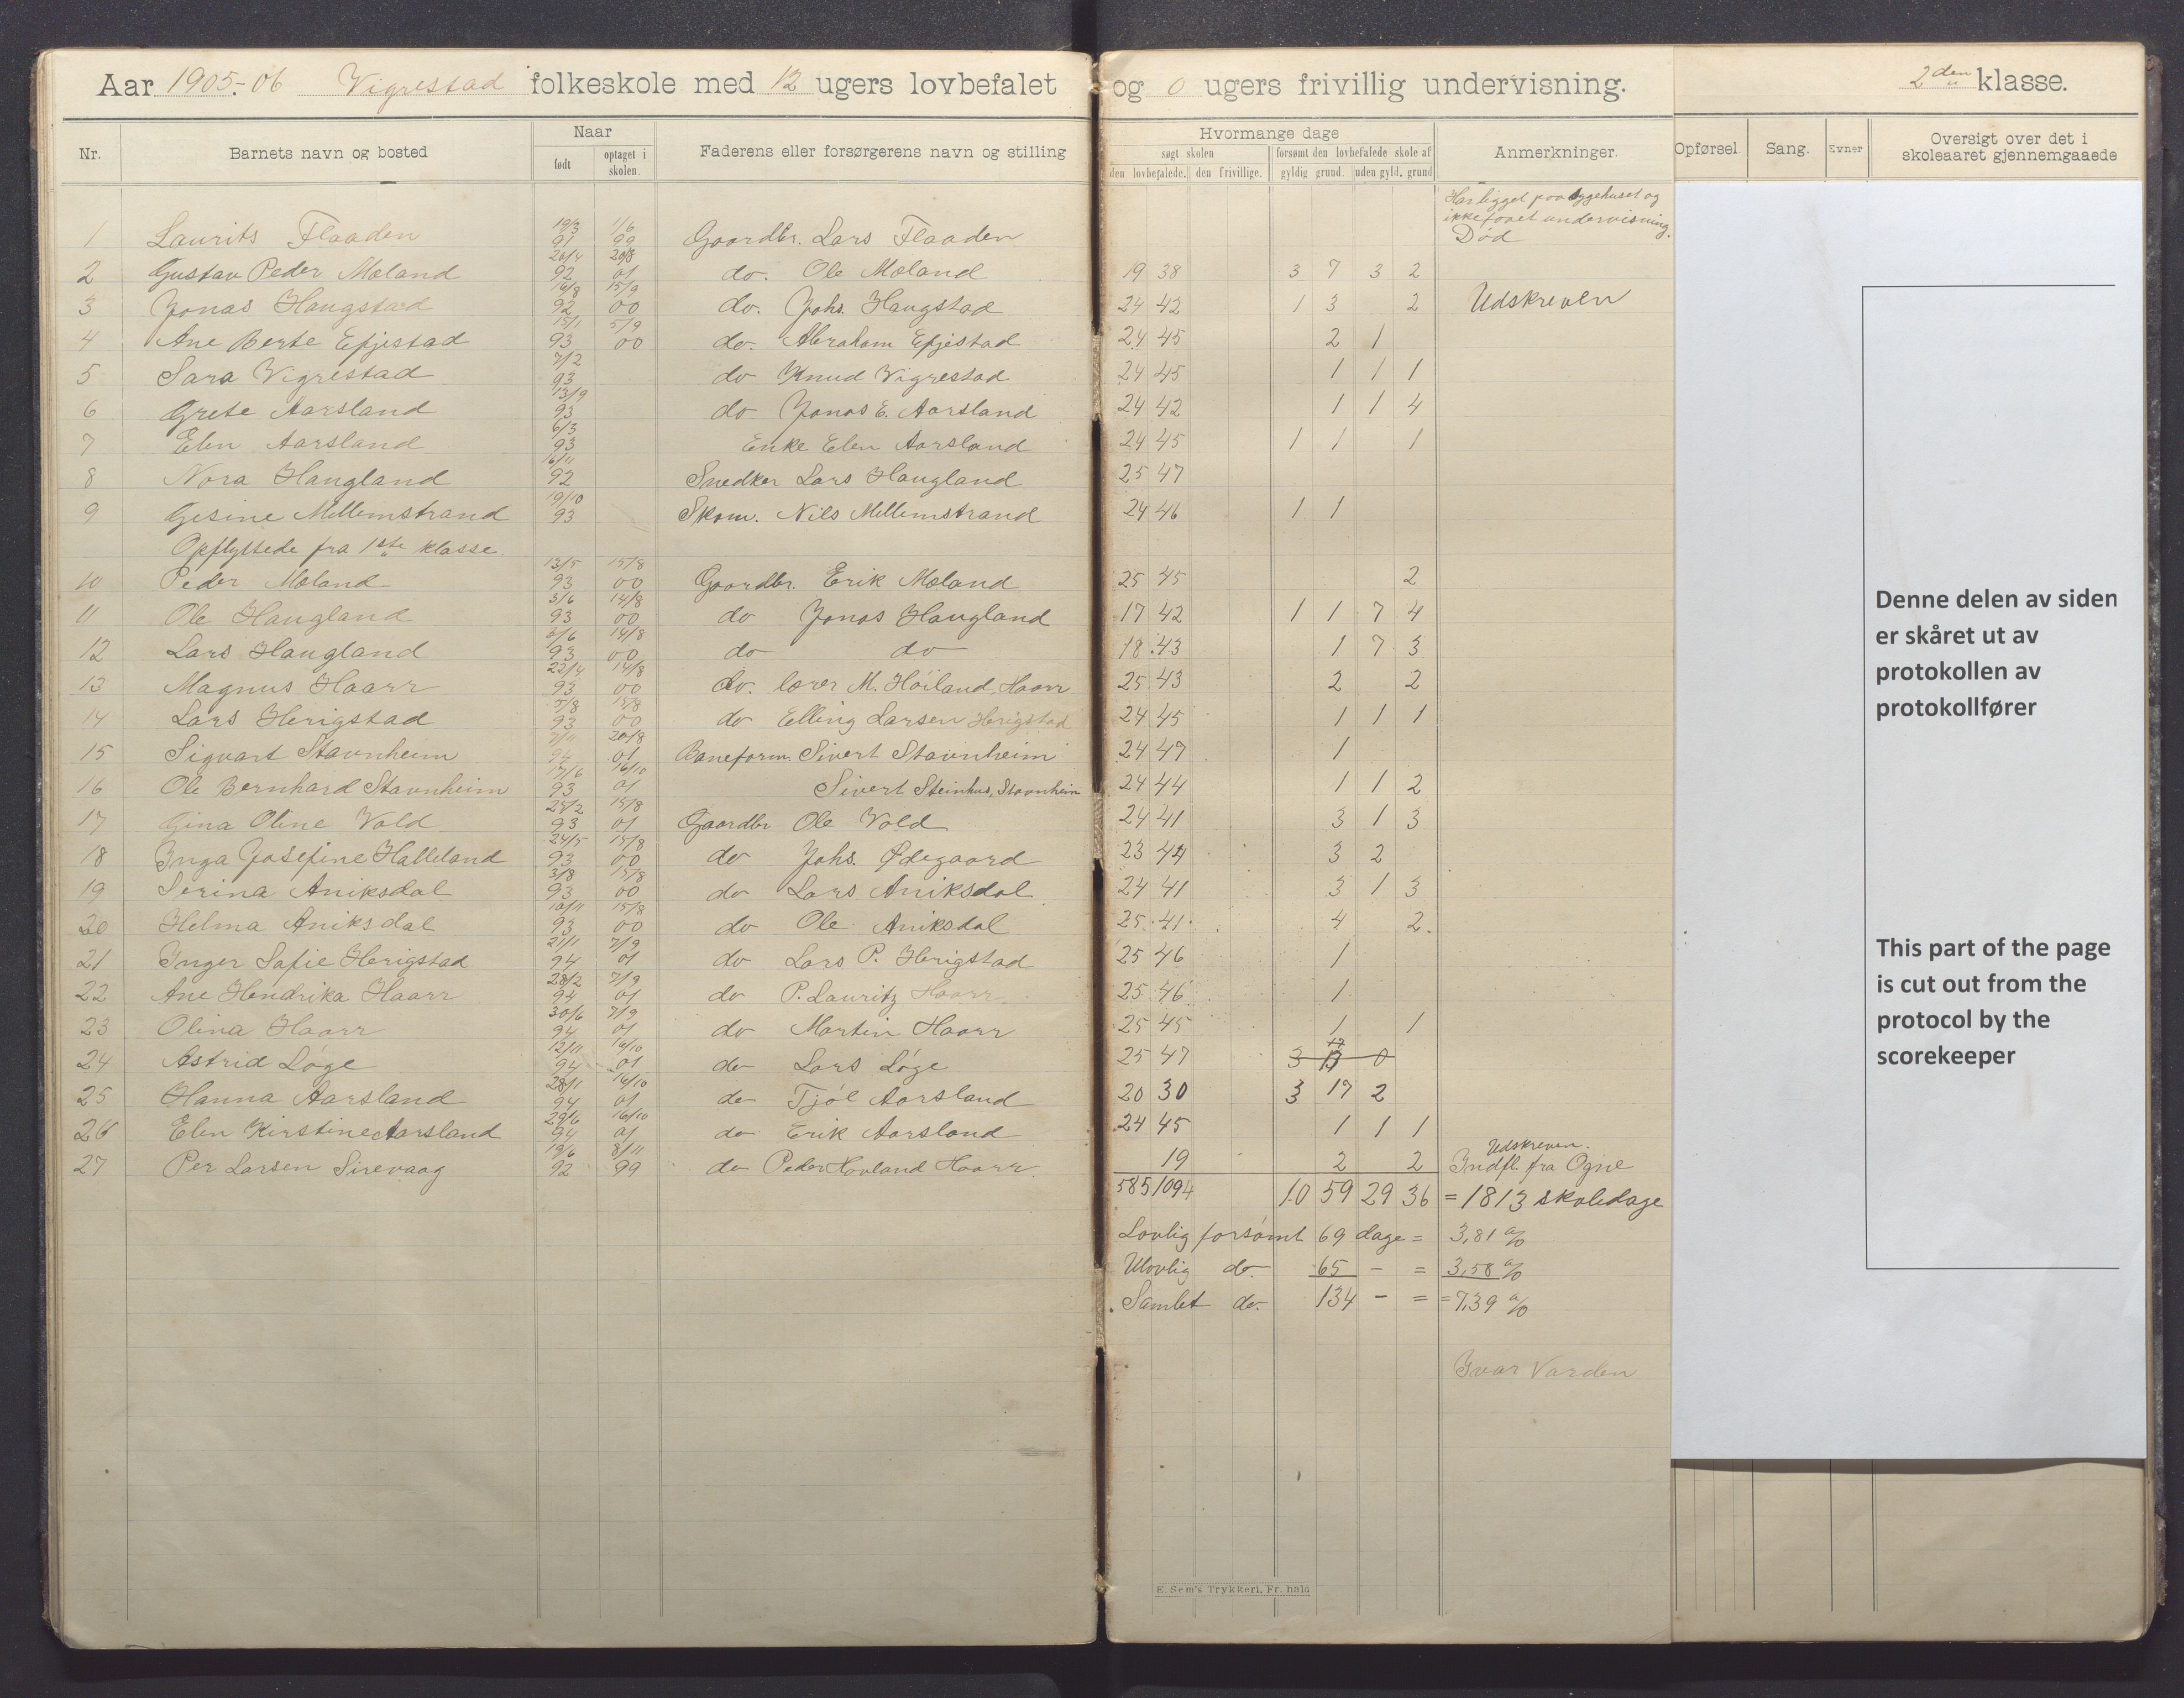 Aar 1905-06 Vigrestad folkeskole med 12 ugers lovbefalet og 0 ugers frivillig undervisning. 2den klasse.
Nr. Barnets navn og bosted Naar Faderens eller forsørgerens navn og stilling Hvormange dage Anmerkninger. Opførsel. Sang. Evner Oversigt over det i
skoleaaret gjennemgaaede
født optaget i skolen. søgt skolen forsømt den lovbefalede skole af
den lovbefalede. den frivillige. gyldig grund. uden gyld. grund
Har ligget paa sygehuset og
ikke faaet undervisning.
1 Laurits Flaaden 19/3 91 1/6 99 Gaardbr. Lars Flaaden Død
2 Gustav Peder Moland 20/4 92 20/8 01 do. Ole Moland 19 38 3 7 3 2
3 Jonas Haugstad 16/8 92 15/9 00 do. Johs. Haugstad 24 42 1 3 2 Udskreven
4 Ane Berte Efjestad 15/1 93 5/9 00 do. Abraham Efjestad 24 45 2 1
5 Sara Vigrestad 7/2 93 do Knud Vigrestad 24 45 1 1 1
6 Grete Aarsland 13/9 93 do Jonas E. Aarsland 24 42 1 1 4
7 Elen Aarsland 6/3 93 Enke Elen Aarsland 24 45 1 1 1
8 Nora Haugland 16/11 92 Snedker Lars Haugland 25 47
9 Gesine Mellemstrand 19/10 93 Skom. Nils Mellemstrand 24 46 1 1
Opflyttede fra 1ste klasse.
10 Peder Moland 13/5 93 15/8 00 Gaardbr. Erik Moland 25 45 2
11 Ole Haugland 3/6 93 14/8 00 do Jonas Haugland 17 42 1 1 7 4
12 Lars Haugland 3/6 93 14/8 00 do do 18 43 1 7 3
13 Magnus Haarr 22/4 93 14/8 00 do. lærer M. Høiland, Haarr 25 43 2 2
14 Lars Herigstad 7/8 93 15/8 00 do Elling Larsen Herigstad 24 45 1 1 1
15 Sigvart Stavnheim 7/11 94 20/8 01 Baneform. Sivert Stavnheim 24 47 1
16 Ole Bernhard Stavnheim 17/6 93 16/10 01 Sivert Steinhus, Stavnheim 24 44 1 1 2
17 Gina Oline Vold 28/2 93 15/8 01 Gaardbr Ole Vold 24 41 3 1 3
18 Inga Josefine Halleland 24/5 93 15/8 00 do Johs. Ødegaard 23 44 3 2
19 Serina Aniksdal 3/8 93 15/8 00 do Lars Aniksdal 24 41 3 1 3
20 Helma Aniksdal 10/11 93 15/8 00 do Ole Aniksdal 25 41 4 2.
21 Inger Sofie Herigstad 21/1 94 7/9 01 do Lars P. Herigstad 25 46 1
22 Ane Hendrika Haarr 28/2 94 7/9 01 do P. Lauritz Haarr 25 46 1
23 Olina Haarr 30/6 94 7/9 01 do Martin Haarr 25 45 1 1
24 Astrid Løge 12/11 94 16/10 01 do Lars Løge 25 47 3 17 0
25 Hanna Aarsland 28/1 94 16/10 01 do Tjøl Aarsland 20 30 3 17 2
26 Elen Kirstine Aarsland 29/6 94 16/10 01 do Erik Aarsland 24 45 1 1 1
Udskreven.
27 Per Larsen Sirevaag 19/6 92 8/11 99 do Peder Hovland Haarr. 19 2 2 Indfl. fra Ogne
585 1094 10 59 29 36 = 1813 skoledage
Lovlig forsømt 69 dage = 3,81 %
Ulovlig do. 65 - = 3,58 %
Samlet do. 134 - = = 7,39 %
Ivar Varden
E. Sem's Trykkeri, Fr.hald
Denne delen av siden
er skåret ut av
protokollen av
protokollfører
This part of the page
is cut out from the
protocol by the
scorekeeper